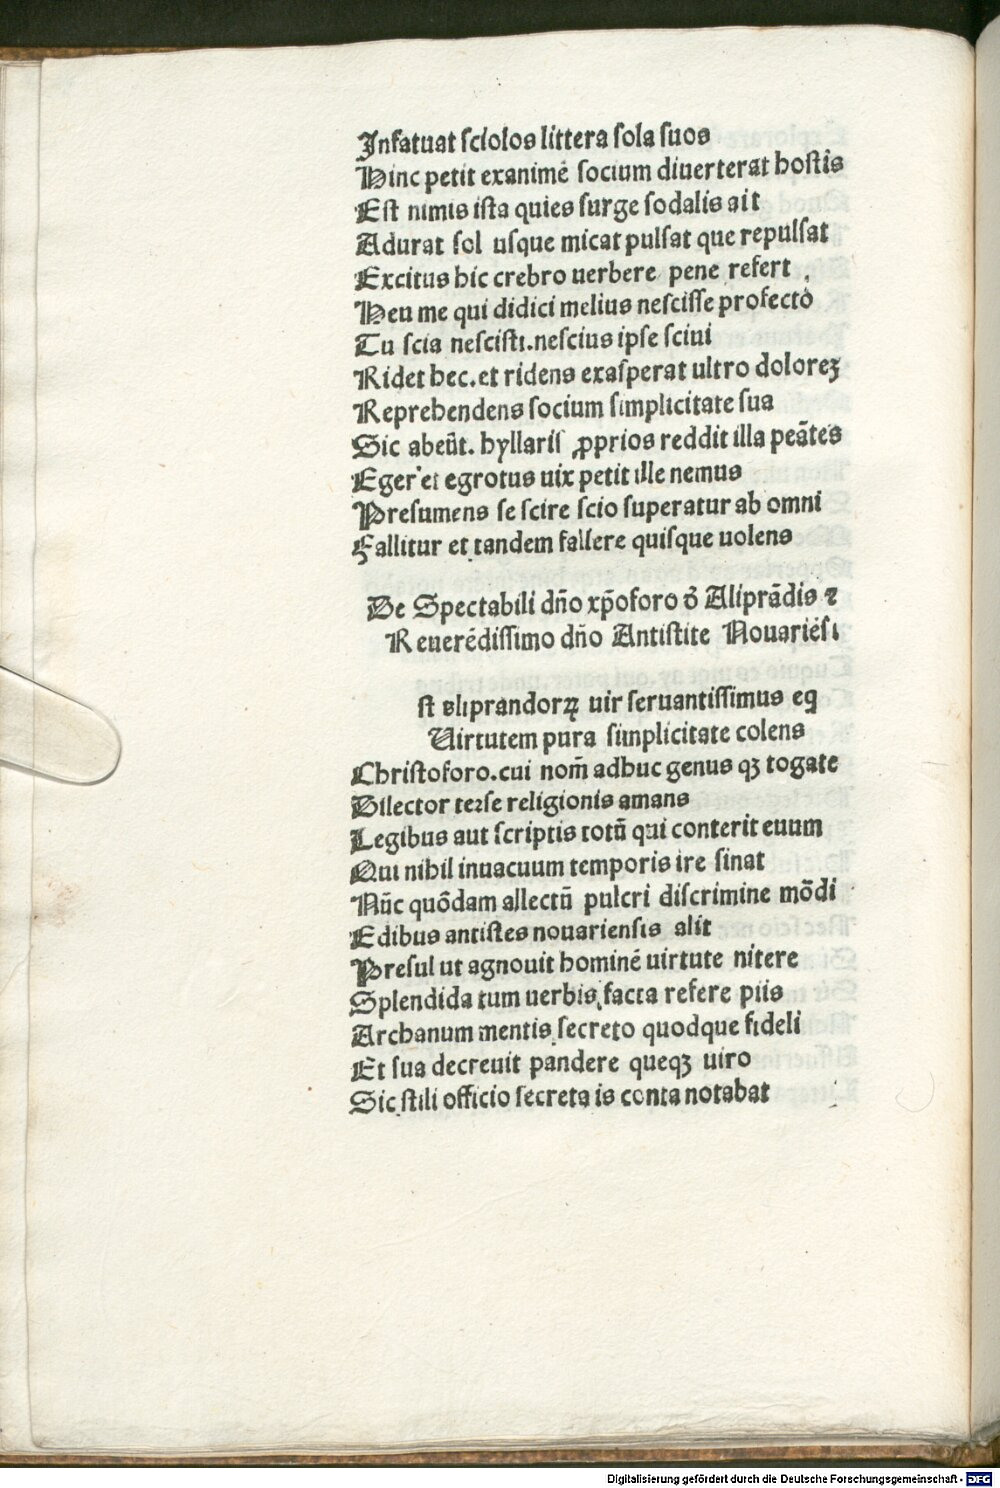 Infatuat sciolos littera sola suos
Hinc petit exanimē socium diuerterat hostis
Est nimis ista quies surge sodalis ait
Adurat sol usque micat pulsat que repulsat
Excitus hic crebro uerbere pene refert
Heu me qui didici melius nescisse profecto
Tu scia nescisti.nescius ipse sciui
Ridet hec.et ridens exasperat ultro doloreꝫ
Reprehendens socium simplicitate sua
Sic abeūt. hyllaris ꝓprios reddit illa peātes
Eger et egrotus uix petit ille nemus
Presumens se scire scio superatur ab omni
Fallitur et tandem fallere quisque uolens
De Spectabili dño xp̄oforo ō Aliprādis ⁊
Reuerēdissimo dño Antistite Nouariēsi
st aliprandorꝝ uir seruantissimus eq
Uirtutem pura simplicitate colens
Christoforo.cui nom̄ adhuc genus qꝫ togate
Dilector terse religionis amans
Legibus aut scriptis totū qui conterit euum
Qui nihil inuacuum temporis ire sinat
Nūc quōdam allectū pulcri discrimine mōdi
Edibus antistes nouariensis alit
Presul ut agnouit hominē uirtute nitere
Splendida tum uerbis facta refere piis
Archanum mentis secreto quodque fideli
Et sua decreuit pandere queqꝫ uiro
Sic stili officio secreta is conta notabat
Digitalisierung gefördert durch die Deutsche Forschungsgemeinschaft - DFG